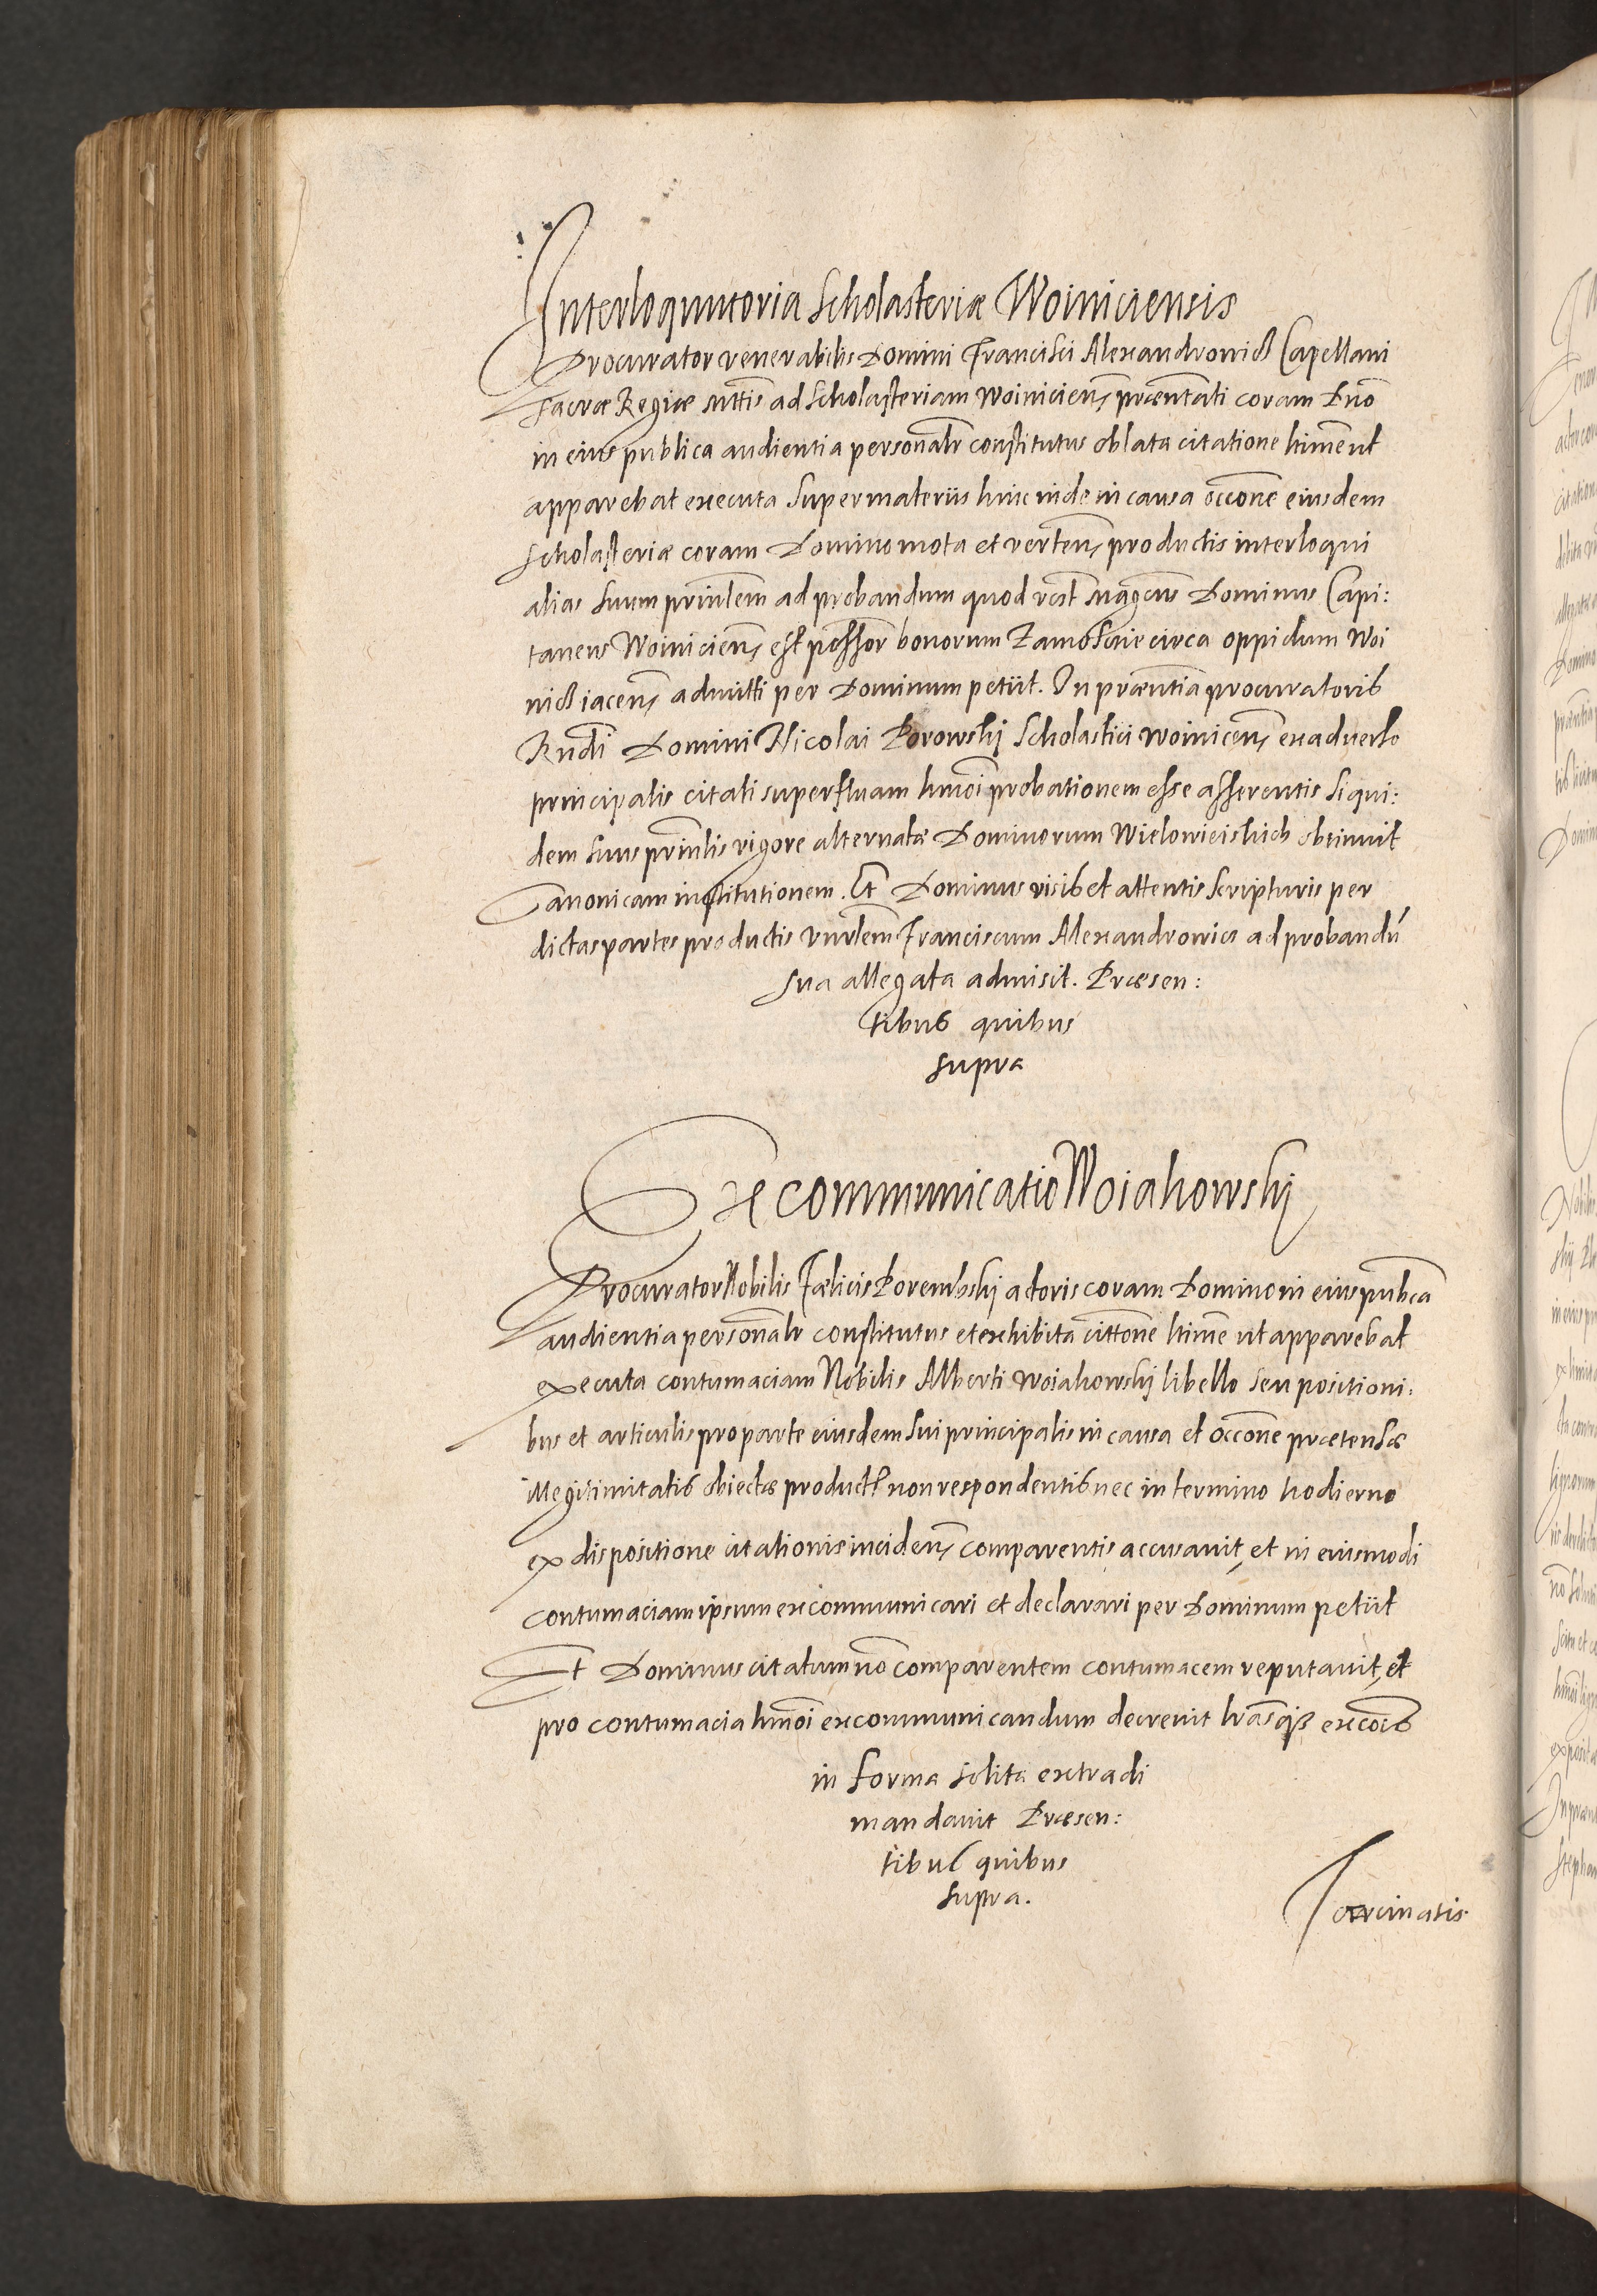 Interloqutoria Scholasteriæ Woiniciensis
Procurator venerabilis Domini Francisci Alexandrowicz Capellani
Sacræ Regiæ Mttis ad Scholasteriam Woinicien præntati coram Dno
in eius publica audientia personalr constitutus oblata citatione ltime ut
apparebat executa super materiis hinc inde in causa occone eiusdem
Scholasteriæ coram Domino mota et verten productis interloqui
alias suum prinlem ad probandum quod Magcus Dominus Capi:
taneus Woinicien est possor bonorum Zamoscie circa oppidum Woi
nicz iacen admitti per Dominum petiit. In præntia procuratoris
Rndi Domini Nicolai Borowskj Scholastici woinicen ex adverso
principalis citati superfluam hmoi probationem esse asserentis siqui:
dem suus prinlis vigore alternatæ Dominorum Wielowieiskich obtinuit
Canonicam institutionem. Et Dominus visis et attentis scripturis per
dictas partes productis vnrlem Franciscum Alexandrowicz ad probandu
sua allegata admisit. Præsen:
tibus quibus
supra
Excommunicatio Woiakowskj
Procurator Nobilis Fælicis Porembskj actoris coram Domino in eius publica
audientia personalr constitutus et exhibita cittone ltime ut apparebat
executa contumaciam Nobilis Alberti Woiakowskj libello seu positioni:
bus et articulis pro parte eiusdem sui principalis in causa et occone prætensæ
illegitimitatis obiectæ product non respondentis nec in termino hodierno
ex dispositione citationis inciden comparentis accusavit, et in eiusmodi
contumaciam ipsum excommunicari et declarari per Dominum petiit
Et Dominus citatum no comparentem contumacem reputavit, et
pro contumacia hmoi excommunicandum decrevit lrasq excois
in forma solita extradi
mandavit Præsen:
tibus quibus
supra.